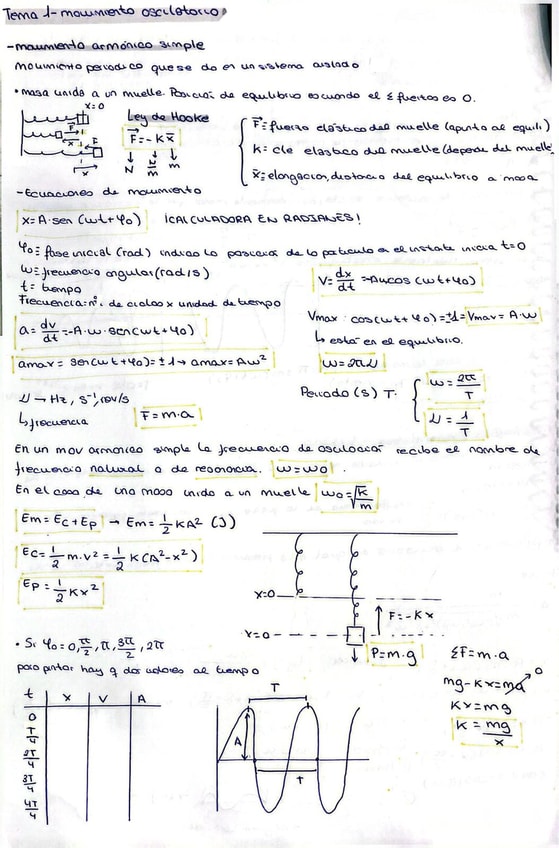 Tema 1- movimiento oscilatorio
-movimiento armónico simple
Movimiento periodico que se da en un sistema aislado
• masa unida a un muelle. Posición de equilibrio es cuando el Σ fuerzas es 0.
x=0
Ley de Hooke
F=-Kx
N N/m m
F=fuerza elástica del muelle (apunta al equili)
K= cte elastica del muelle (depende del muelle
x=elongacion, distancia del equilibrio a masa
-Ecuaciones de movimiento
x=A·sen (ωt+φ0) ¡CALCULADORA EN RADIANES!
φ0= fase inicial (rad) indica la posicion de la particula en el instante inicial t=0
ω=frecuencia angular (rad/s)
t= tiempo
Frecuencia=nº. de ciclos x unidad de tiempo
V= dx/dt =Aωcos (ωt+φ0)
a= dv/dt =-A·ω·sen(ωt+φ0)
Vmax: cos(ωt+φ0)=±1=Vmax=A·ω
↳ esta en el equilibrio.
amax= sen(ωt+φ0)=±1→amax=Aω²
ω=2πν
ν→Hz, s⁻¹, rev/s
↳frecuencia
F=m·a
Periodo (s) T.
ω=2π/T
ν=1/T
En un mov armonico simple la frecuencia de oscilacion recibe el nombre de
frecuencia natural o de resonancia. ω=ω0.
En el caso de una masa unida a un muelle ω0=√K/m
Em=Ec+Ep → Em=1/2 KA² (J)
Ec=1/2 m·v²=1/2 K(A²-x²)
Ep=1/2 Kx²
x=0
F=-Kx
x=0
P=m·g
ΣF=m·a
mg-Kx=ma 0
Kx=mg
K=mg/x
• Si φ0=0, π/2, π, 3π/2, 2π
para pintar hay q dar valores al tiempo
t x V A
0
T/4
2T/4
3T/4
4T/4
T
A
T